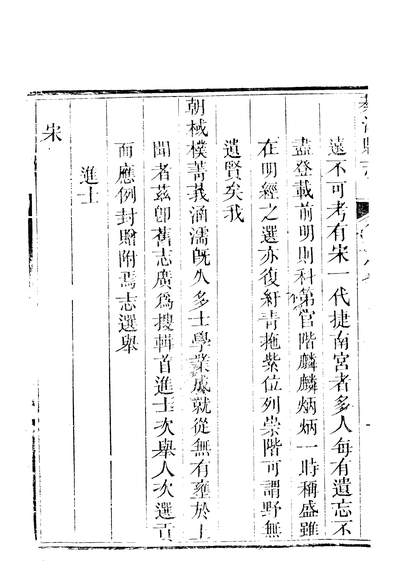 遠不可考有宋一代捷南宮者多人每有遺忘不
盡登載前明則科第官階麟麟炳炳一時稱盛雖
在明經之選亦復紆青拖紫位列崇階可謂野無
遺賢矣我
朝棫樸菁莪涵濡旣久多士學業成就從無有壅於上
聞者茲卽舊志廣爲搜輯首進士次舉人次選貢
而應例封贈附焉志選舉
進士
宋